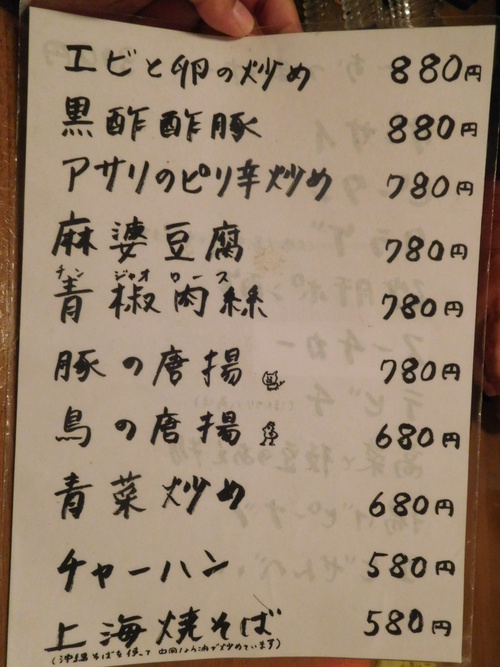 エビと卵の炒め 880円
黒酢酢豚 880円
アサリのピリ辛炒め 780円
麻婆豆腐 780円
チン ジャオ ロース
青椒肉絲 780円
豚の唐揚 780円
鳥の唐揚 680円
青菜炒め 680円
チャーハン 580円
上海焼そば 580円
(沖縄そばを使って中国しょう油で炒めています)